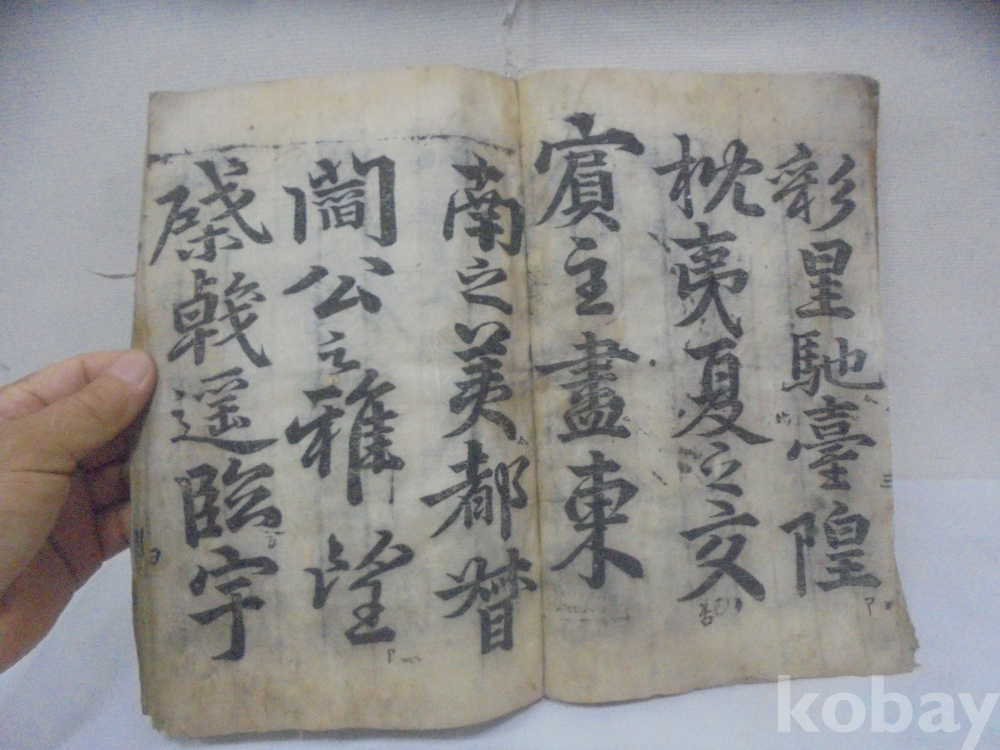 彩星馳臺隍
枕夷夏之交
賓主盡東
南之美都督
閻公之雅望
棨戟遥臨宇
三
kobay